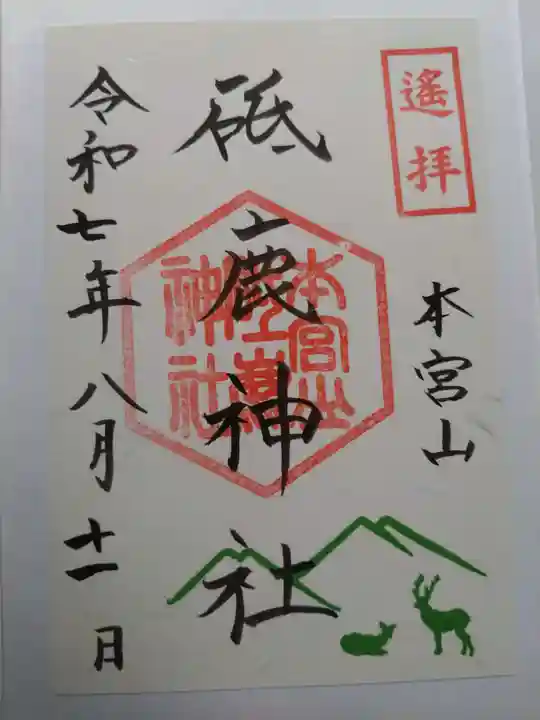 遙拝
本宮山
砥鹿神社
本宮山
神社
令和七年八月十一日